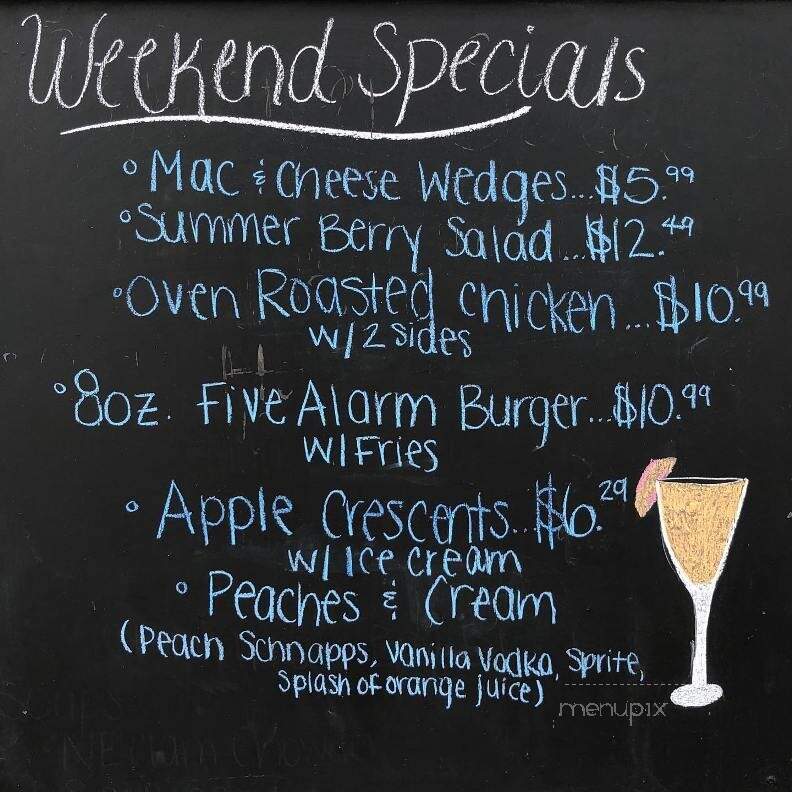 Weekend Specials
° Mac & Cheese Wedges...$5.99
° Summer Berry Salad...$12.49
° Oven Roasted Chicken...$10.99
w/2 sides
° 8oz. Five Alarm Burger...$10.99
W/Fries
° Apple Crescents...$6.29
w/ Ice cream
° Peaches & Cream
(Peach Schnapps, Vanilla Vodka, Sprite,
splash of orange juice)
menupix